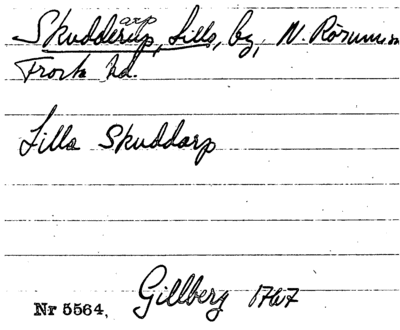 arp
Skudderup, Lilla, by, N. Rörums sn
Frosta hd.
Lilla Skuddarp
Nr 5564, Gillberg 1767